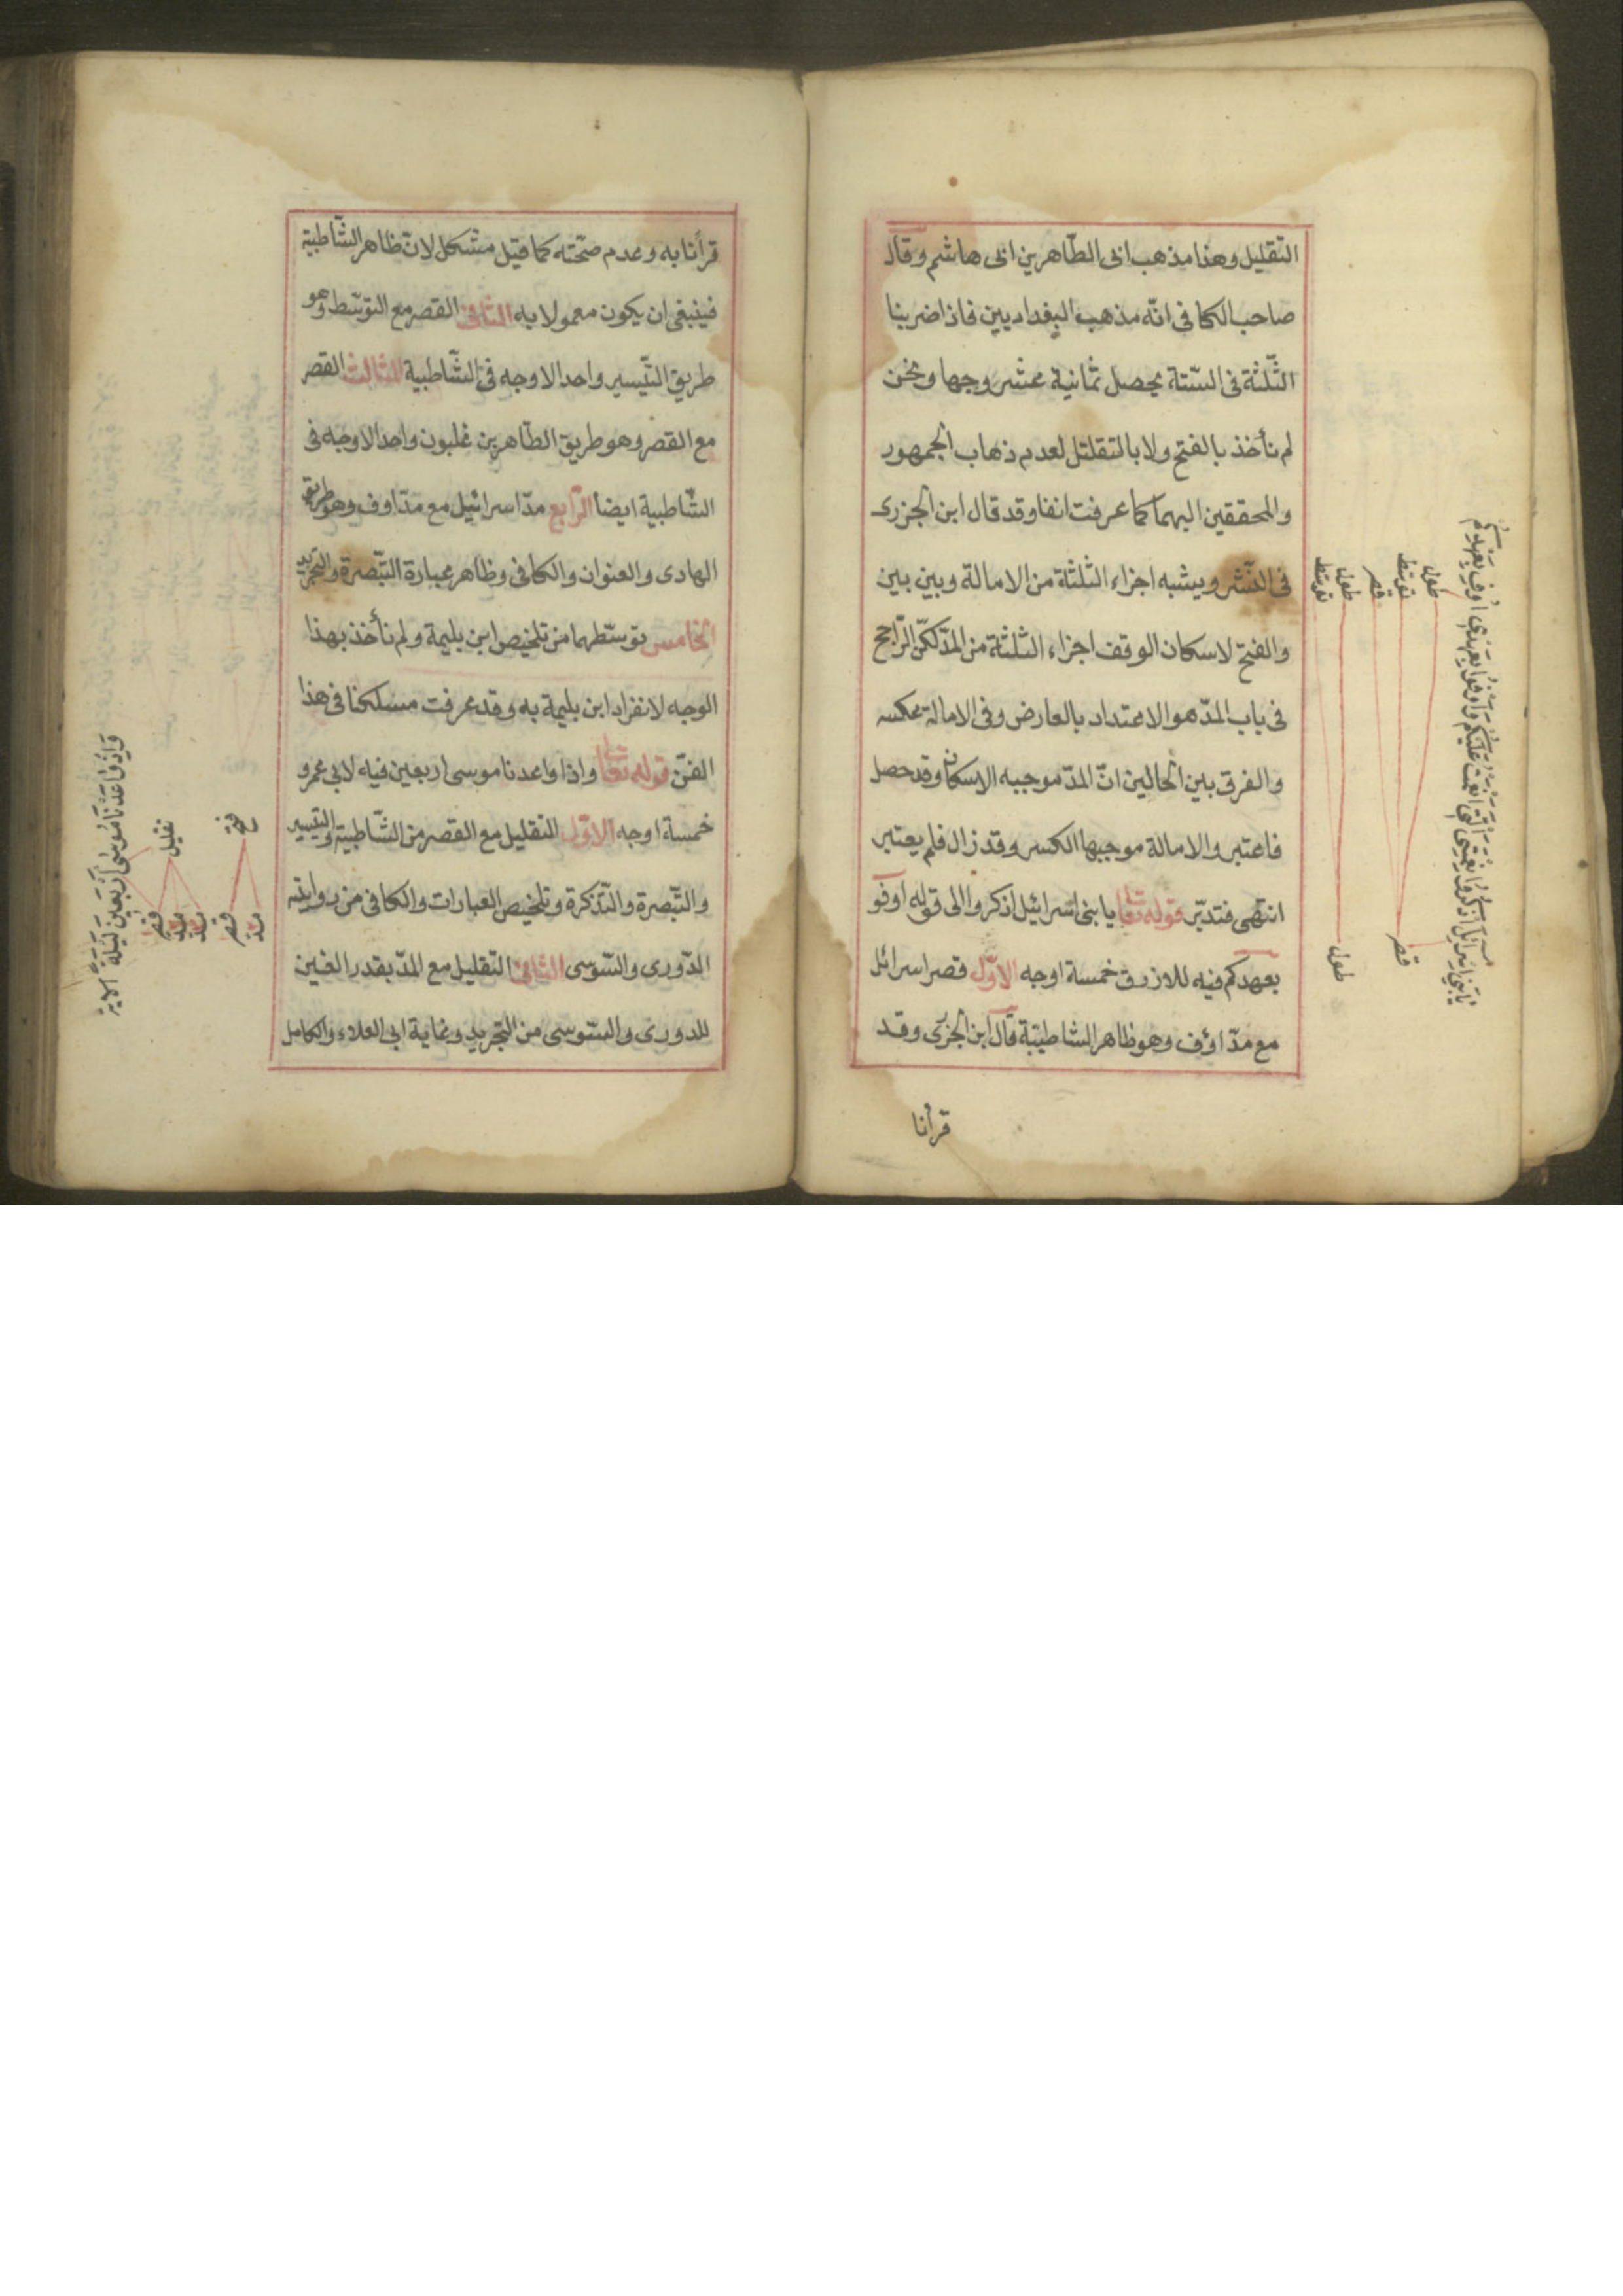 التقليل وهذا مذهب ابى الطّاهرين ابى هاشم وقال
صاحب الكافى انّه مذهب البغداديين فاذا ضربنا
الثّلثة فى الستّة يحصل ثمانية عشر وجها ونحن
لم نأخذ بالفتح ولا بالتقلتل لعدم ذهاب الجمهور
والمحققين اليهما كما عرفت انفا وقد قال ابن الجزرى
فى النّشر ويشبه اجزاء الثلثة من الامالة وبين بين
والفتح لاسكان الوقف اجزاء الثلثة من المدّ لكنّ الرّاجح
فى باب المدّ هو الاعتداد بالعارض وفى الامالة عكسه
والفرق بين الحالين انّ المدّ موجبه الاسكان وقد حصل
فاعتبر والامالة موجبها الكسر وقد زال فلم يعتبر
انتهى فتدبّر قوله تعا يا بنى اسرائيل اذكروا الى قوله اوفو
بعهدكم فيه للازرق خمسة اوجه الاوّل قصر اسرائل
مع مدّ اوف وهو ظاهر الشاطبيّة قال ابن الجزرى وقد
قرأنا
طول
توسّط
قصر
طول
توسّط
قصر
طول
يَا بَنِى اسْرائِل اذْكُرُوا نِعْمَتِىَ الَّتِى انْعَمْتُ عَلَيْكُمْ وَاَوْفُوا بِعَهْدِى اُوفِ بِعَهْدِكُمْ
قرأنا به وعدم صحّته كما قيل مشكل لانّ ظاهر الشّاطبية
فينبغى ان يكون معمولا به الثّانى القصر مع التوسّط وهو
طريق التّيسير واحد الاوجه فى الشّاطبية الثالث القصر
مع القصر وهو طريق الطّاهرين غلبون واحد الاوجه فى
الشّاطبية ايضا الرّابع مدّ اسرائيل مع مدّ اوف وهو طريق
الهادى والعنوان والكافى وظاهر عبارة التّبصرة والتجريد
الخامس توسّطهما من تلخيص ابن بليمة ولم نأخذ بهذا
الوجه لانفراد ابن بليمة به وقد عرفت مسلكنا فى هذا
الفنّ قوله تعا واذا واعدنا موسى اربعين فيه لابى عمرو
خمسة اوجه الاوّل التقليل مع القصر من الشّاطبية والتيسير
والتّبصرة والتّذكرة وتلخيص العبارات والكافى من روايتيه
الدّورى والسّوسى الثّانى التقليل مع المدّ بقدر الفين
للدورى والسّوسى من التّجريد وغاية ابى العلاء والكامل
فتح
تقليل
مدّ
قصر
مدّ
مدّ
قصر
وَاِذْ وَاعَدْنَا مُوسَى اَرْبَعِينَ لَيْلَةً الاية